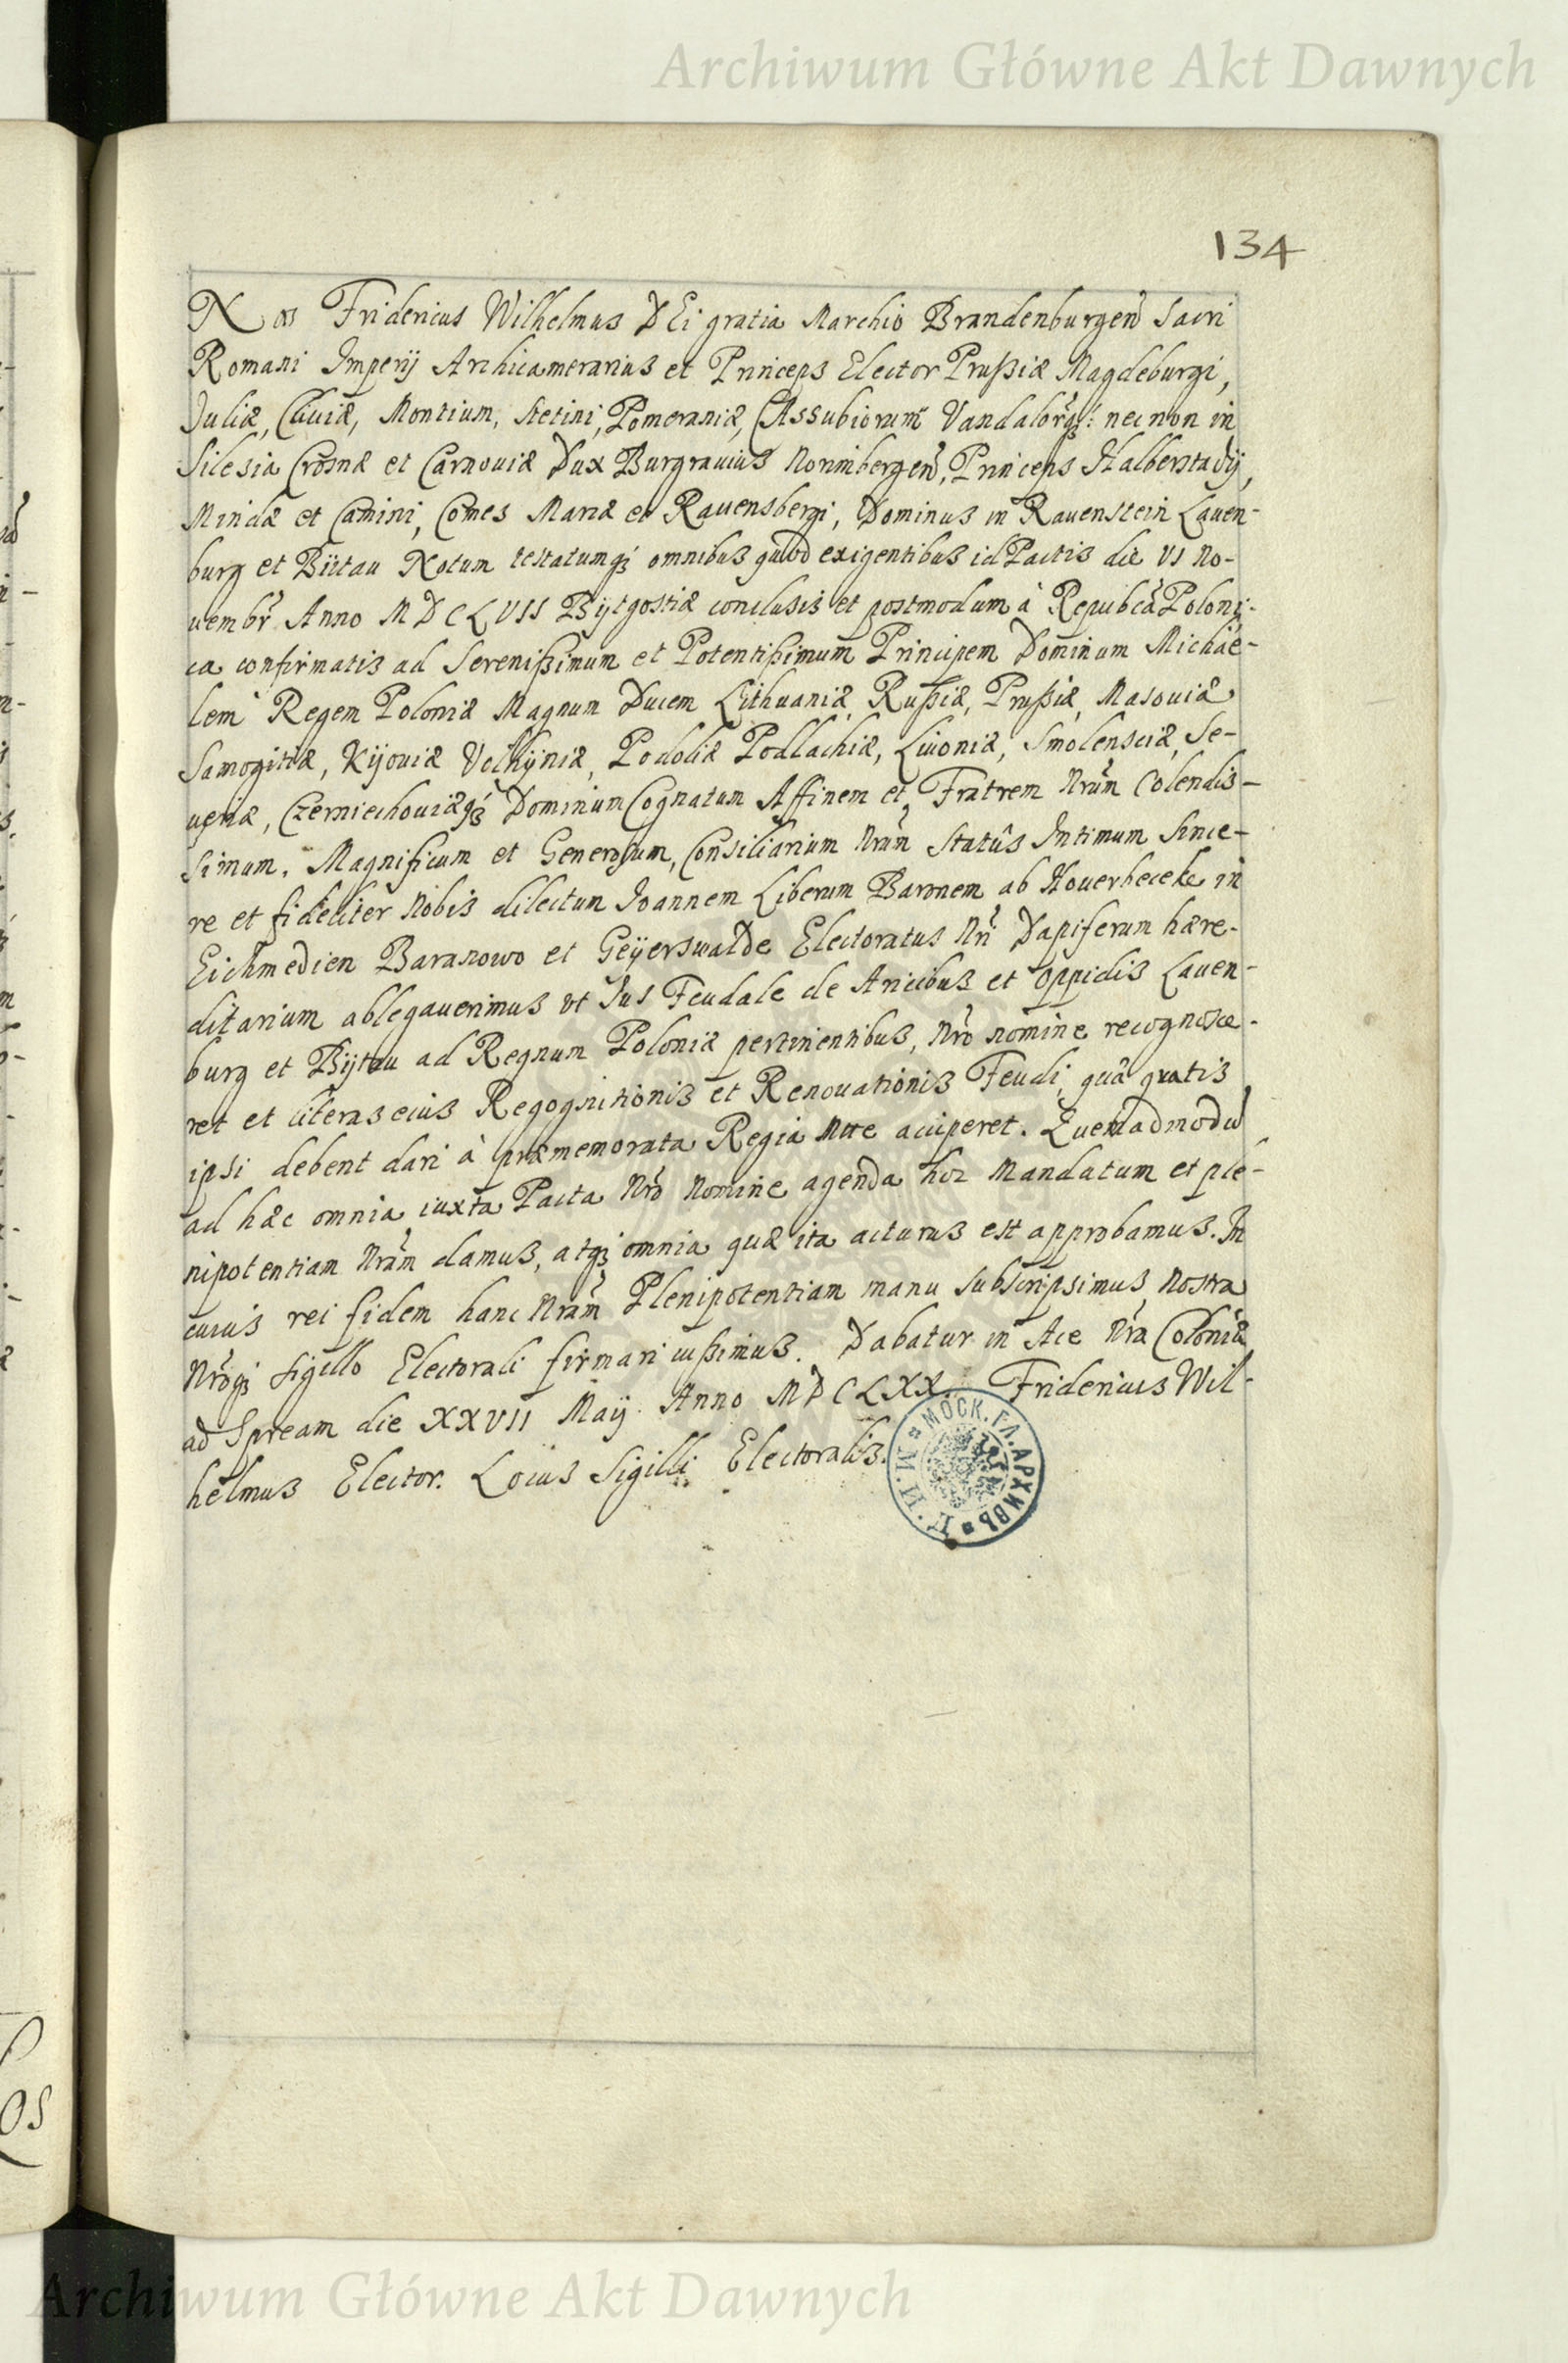 Archiwum Główne Akt Dawnych
134
Nos Fridericus Wilhelmus DEi gratia Marchio Brandenburgen̄ Sacri
Romani Imperij Archicamerarius et Princeps Elector Prußiæ Magdeburgi,
Juliæ, Cliviæ, Montium, Stetini, Pomeraniæ, CAssubiorum Vandalorq́ꝫ: necnon in
Silesia Crosnæ et Carnoviæ Dux Burgravius Norimbergen̄, Princeps Halberstadij,
Mindæ et Camini, Comes Marcæ et Ravensbergi, Dominus in Ravenstein Lauen-
burg et Bütau Notum testatumq́ꝫ omnibus quod exigentibus id Pactis die VI No-
uembr̄ Anno MDCLVII Bijtgostiæ conclusis et postmodum à Repubcã Poloni-
ca confirmatis ad Serenißimum et Potentißimum Principem Dominum Michae-
lem Regem Poloniæ Magnum Ducem Lithuaniæ, Rußiæ, Prußiæ, Masouiæ
Samogitiæ, Kijouiæ Volhijniæ, Podoliæ Podlachiæ, Liuoniæ, Smolensciæ, Se-
ueriæ, Czerniechouiæq́ꝫ Dominum Cognatum Affinem et Fratrem Nrum̄ Colendis-
simum. Magnificum et Generosum, Consiliarium Nrum̄ Statûs Intimum Since-
re et fideliter Nobis dilectum Joannem Liberum Baronem ab Houerbecke in
Eichmedien Baranowo et Geÿerswalde Electoratus Nri̅ Dapiferum hære-
ditarium ablegauerimus vt Jus Feudale de Arcibus et Oppidis Lauen-
burg et Bijtau ad Regnum Poloniæ pertinentibus, Nrō nomine recognosce-
ret et literas eius Regognitionis et Renouationis Feudi, quæ gratis
ipsi debent dari à præmemorata Regia Mtte acciperet. Quemadmodū
ad hæc omnia iuxta Pacta Nrō Nomine agenda hoc Mandatum et ple-
nipotentiam Nram̄ damus, atqꝫ omnia quæ ita acturus est approbamus. In
cuius rei fidem hanc Nram̄ Plenipotentiam manu subscripsimus Nostra
Nrōqꝫ Sigillo Electorali firmari iußimus. Dabatur in Arce Nrā Coloniæ
ad Spream die XXVII Maij Anno MDCLXX. Fridericus Wil-
helmus Elector. Locus Sigilli Electoralis.
МОСК. ГЛ. АРХИВЪ
М. И. Д.
Archiwum Główne Akt Dawnych